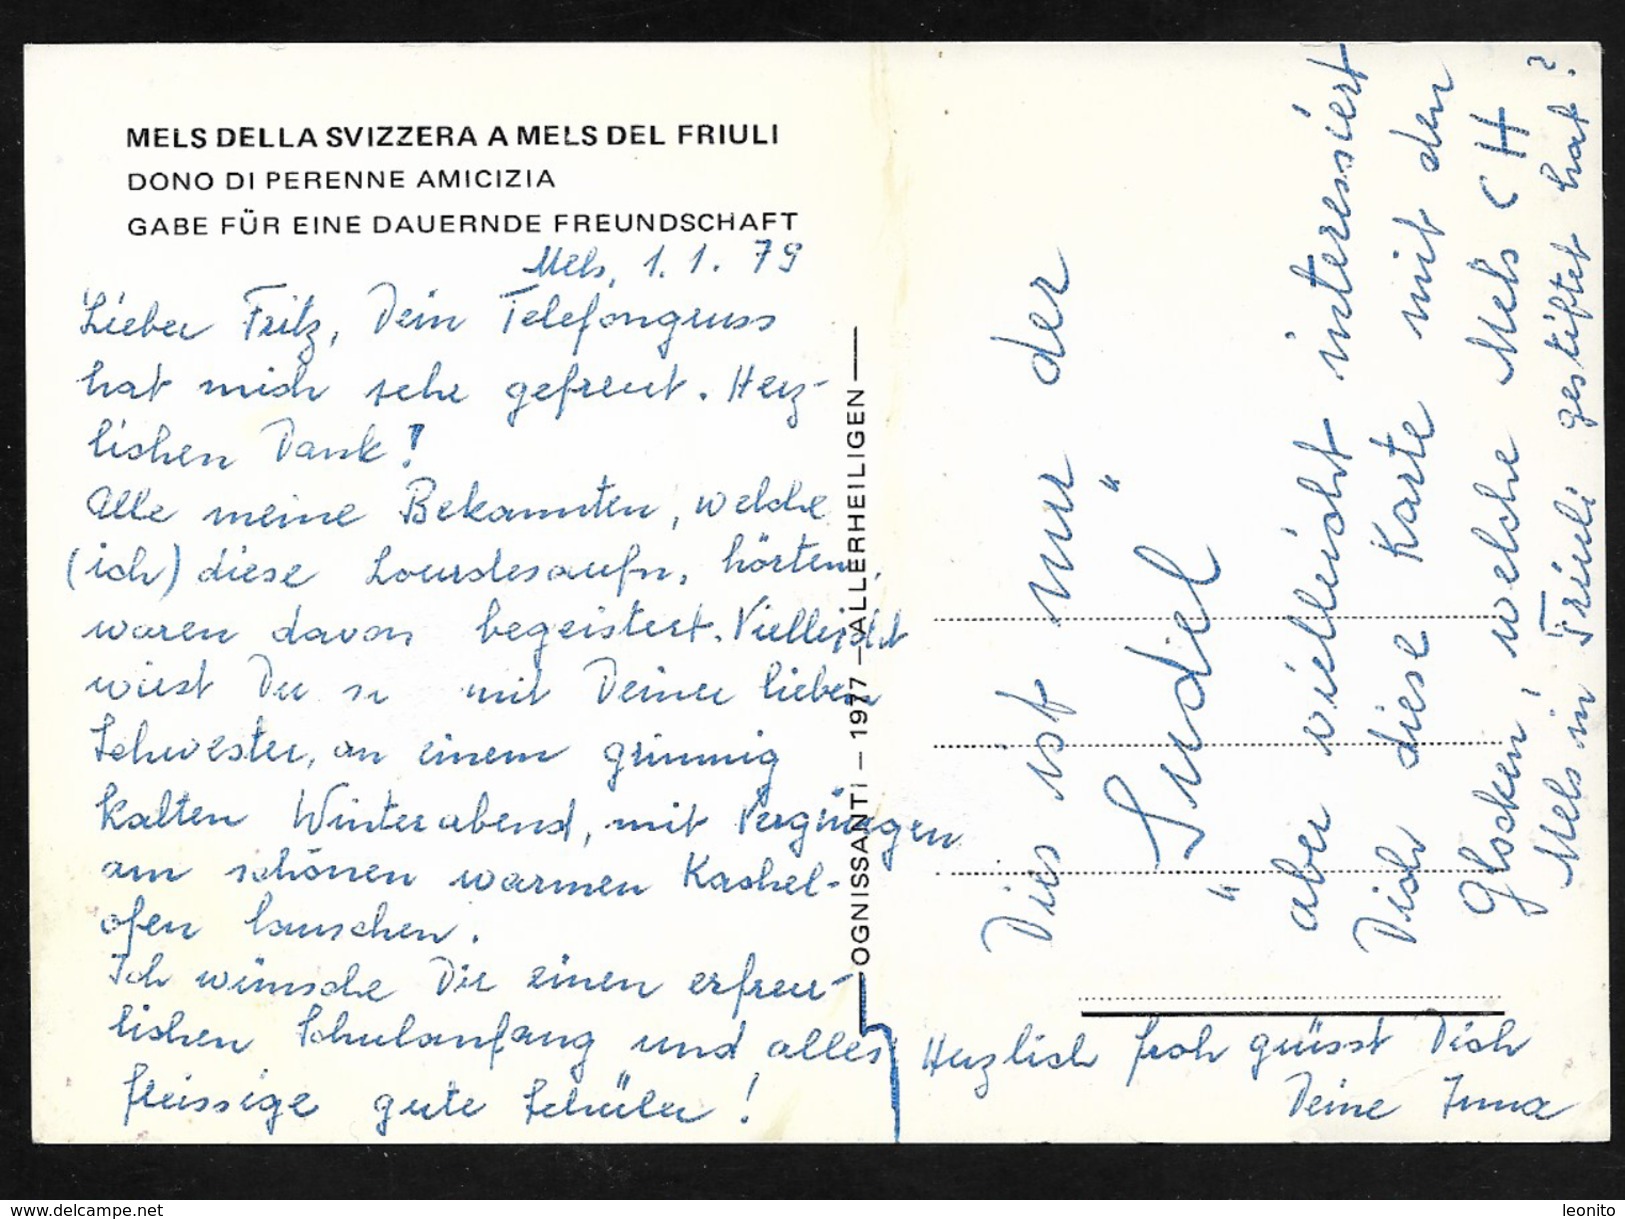 MELS DELLA SVIZZERA A MELS DEL FRIULI
DONO DI PERENNE AMICIZIA
GABE FÜR EINE DAUERNDE FREUNDSCHAFT
Mels, 1.1.79
Lieber Fritz, Dein Telefongruss
hat mich sehr gefreut. Herz-
lichen Dank!
Alle meine Bekannten, welche
(ich) diese Lourdesaufn. hörten,
waren davon begeistert. Vielleicht
wirst Du sie mit Deiner lieben
Schwester, an einem grimmig
kalten Winterabend, mit Vergnügen
am schönen warmen Kachel-
ofen lauschen.
Ich wünsche Dir einen erfreu-
lichen Schulanfang und alles
fleissige gute Schüler!
OGNISSANTI – 1977 – ALLERHEILIGEN
Dies ist nur der
"Sudel"
aber vielleicht interessiert
Dich diese Karte mit den
Glocken! welche Mels CH
Mels in Friuli gestiftet hat?
Herzlich froh grüsst Dich
Deine
https://www.delcampe.net
leonito